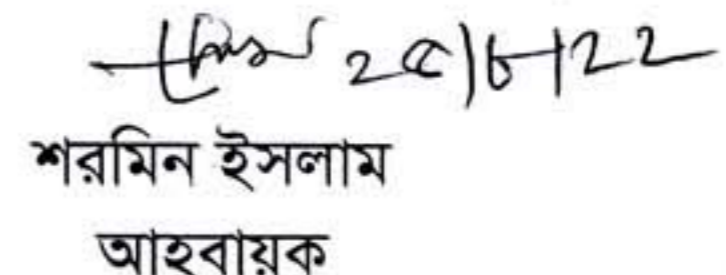 ২৫/৮/২২
শরমিন ইসলাম
আহবায়ক